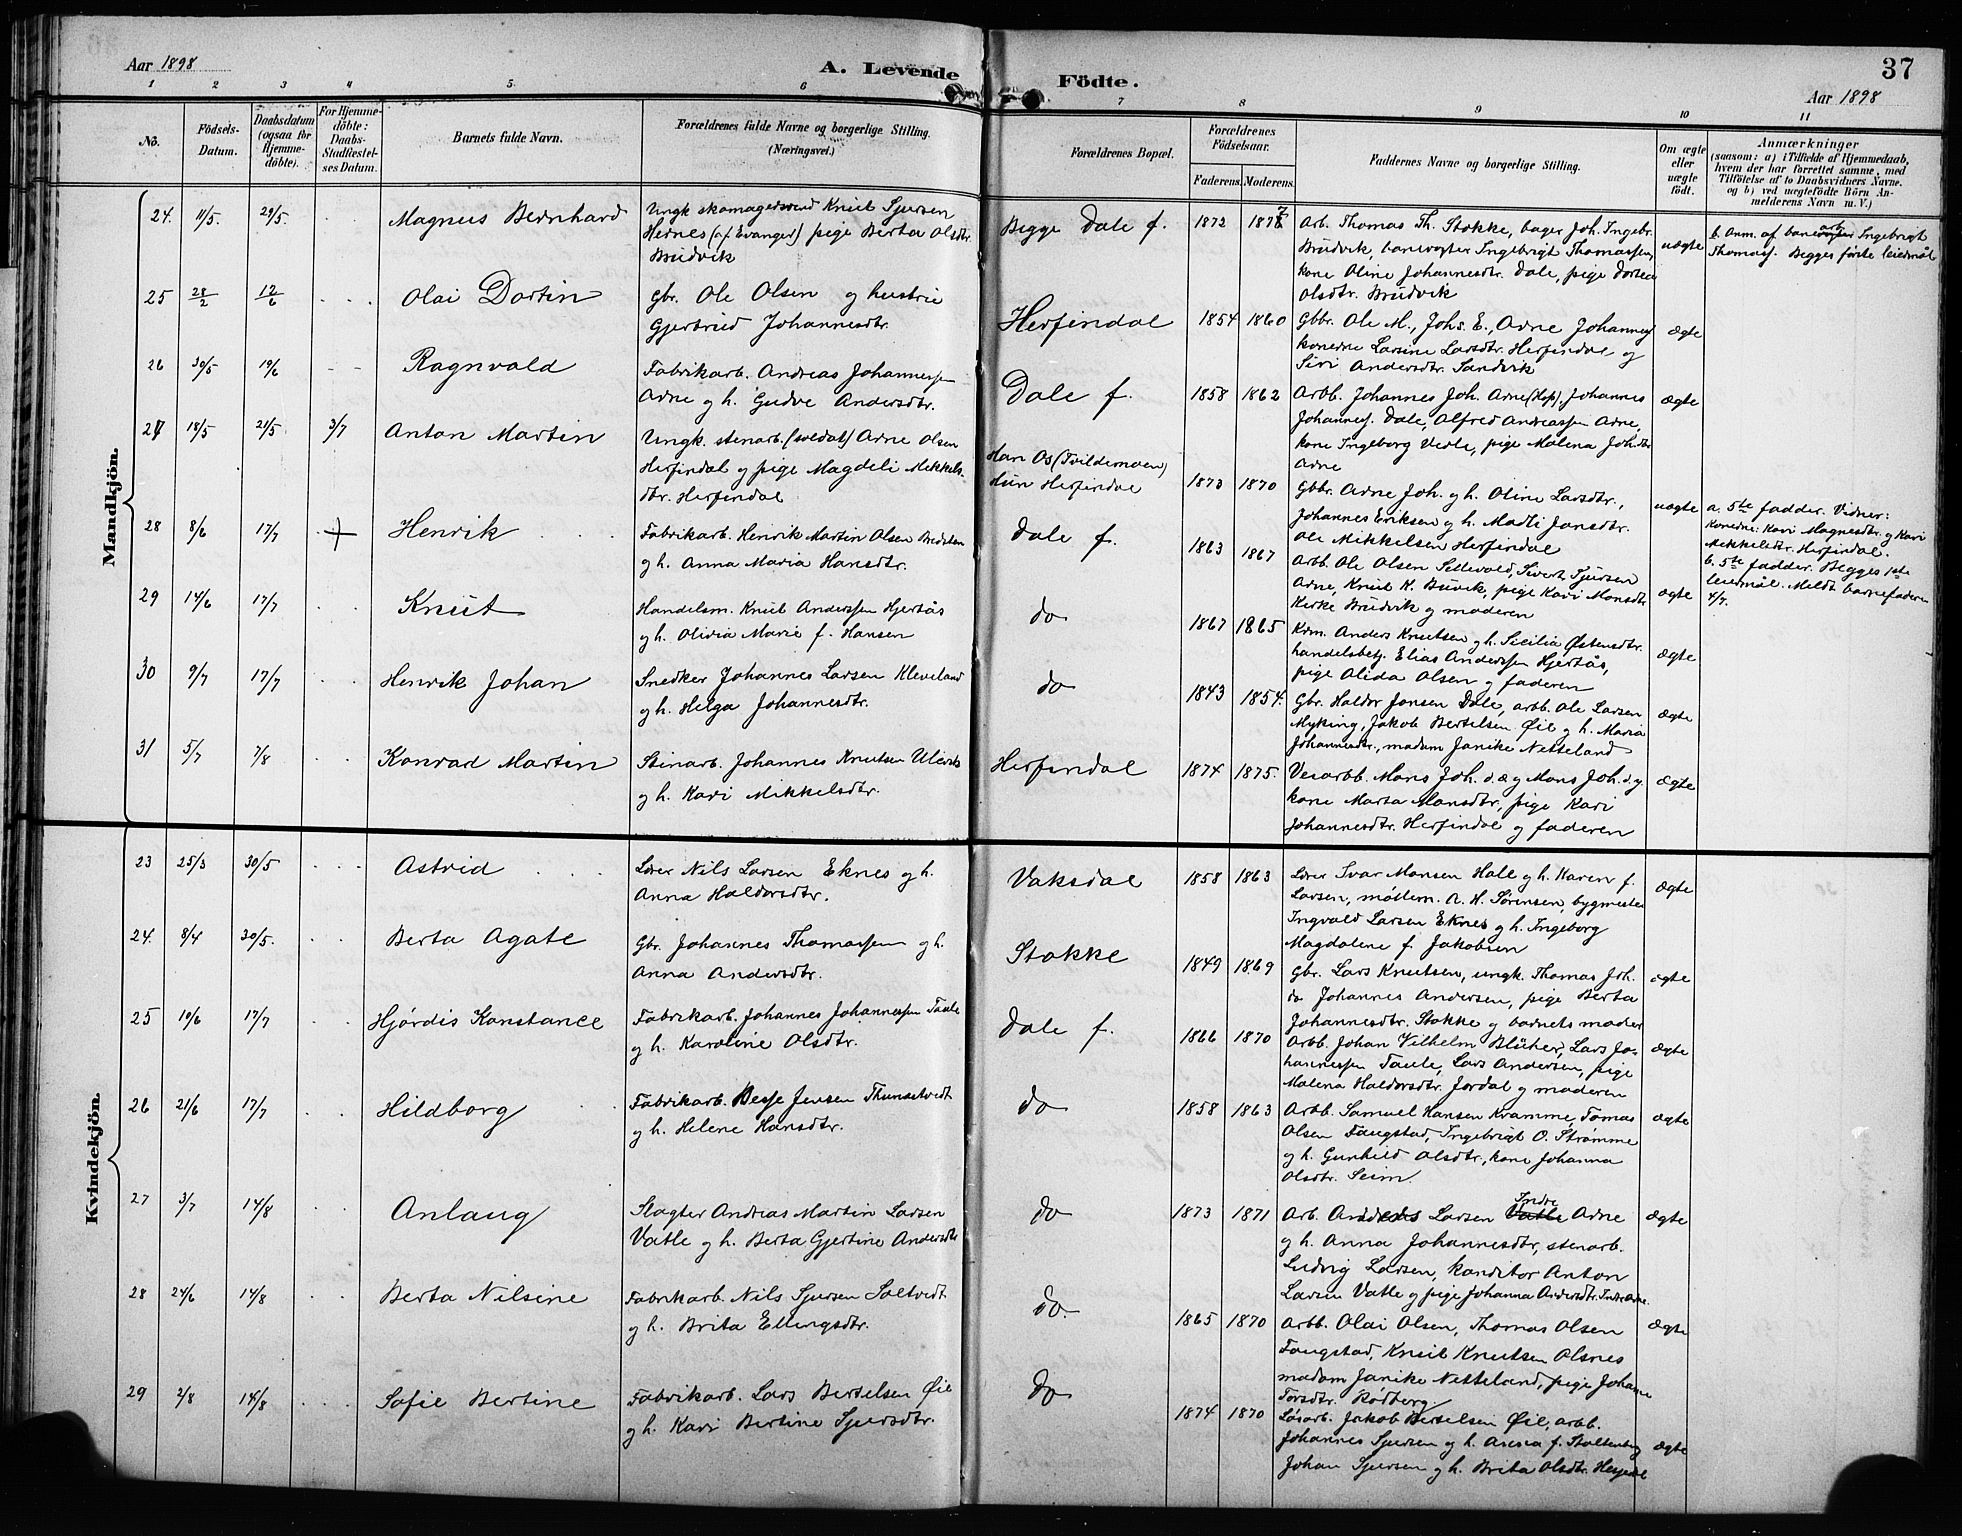 Aar 1898
A. Levende Födte.
37
Aar 1898
1 2 3 4 5 6 7 8 9 10 11
No.
Födsels-
Datum.
Daabsdatum
(ogsaa for
Hjemme-
döbte).
For Hjemme-
döbte:
Daabs-
Stadfæstel-
ses Datum.
Barnets fulde Navn.
Forældrenes fulde Navne og borgerlige Stilling.
(Næringsvei.)
Forældrenes Bopæl.
Forældrenes
Födselsaar.
Faderens. Moderens.
Faddernes Navne og borgerlige Stilling.
Om ægte
eller
uægte
födt.
Anmærkninger
(saasom: a) i Tilfælde af Hjemmedaab,
hvem der har forrettet samme, med
Tilföielse af to Daabsvidners Navne.
og b) ved uægtefödte Börn An-
melderens Navn m. V.)
Mandkjön.
24. 11/5. 29/5. Magnus Bernhard
Ungk skomagersvend Knut Sjursen
Hernes (af Evanger) pige Berta Olsdtr.
Brudvik
Begge Dale f. 1872 1877
Arb. Thomas Th. Stokke, bager Joh. Ingebr.
Brudvik, banevogter Ingebrigt Thomassen,
kone Oline Johannesdtr. Dale, pige Dortea
Olsdtr. Brudvik
uægte
b. Anm. af banearb. Ingebrigt
Thomass. Begges förste leiermål
25 28/2 12/6 Olai Dortin
Gbr. Ole Olsen og hustru
Gjertrud Johannesdtr.
Herfindal 1854 1860
Gbbr. Ole M., Johs. E., Arne Johannes
konerne Larsine Larsdtr. Herfindal og
Siri Andersdtr. Sandvik
ægte
26 30/5 19/6 Ragnvald
Fabrikarb. Andreas Johannessen
Arne og h. Gudve Andersdtr.
Dale f. 1858 1862
Arbb. Johannes Joh. Arne (Hop), Johannes
Johanness. Dale, Alfred Andreassen Arne,
kone Ingeborg Vedle, pige Malena Joh.dtr.
Arne
ægte
27 18/5 21/5 3/7 Anton Martin
Ungk. stenarb. (soldat) Arne Olsen
Herfindal og pige Magdeli Mikkels-
dtr. Herfindal
Han Os (Tvildemoen)
Hun Herfindal
1873 1870
Gbbr. Arne Joh. og h. Oline Larsdtr,
Johannes Eriksen og h. Madli Jonsdtr.
Ole Mikkelsen Herfindal
uægte
a. 5te fadder. Vidner:
Konerne: Kari Magnesdtr. og Kari
Mikkelsdtr. Herfindal.
b. 5te fadder. Begges 1ste
leiermål. Meldt barnefaderen
4/7.
28 8/6 17/7 Henrik
Fabrikarb. Henrik Martin Olsen
og h. Anna Maria Hansdtr.
Dale f. 1863 1867
Arbb. Ole Olsen Sellevold, Sivert Tjursen
Arne, Knut K. Buvik, pige Kari Monsdtr
Kirke Brudvik og moderen
ægte
29 14/6 17/7 Knut
Handelsm. Knut Anderssen Hjertås
og h. Olivia Marie f. Hansen
do 1867 1865
Krm. Anders Knutsen og h. Sicilia Østensdtr.
handelsbetj. Elias Anderssen Hjertås,
pige Alida Olsen og faderen
ægte
30 9/7 17/7 Henrik Johan
Snedker Johannes Larsen Kleveland
og h. Helga Johannesdtr.
do 1843 1854.
Gbr. Haldor Jonsen Dale, arbb. Ole Larsen
Myking, Jakob Bertelsen Øie og h. Maria
Johannesdtr., madam Janike Nesseland
ægte
31 5/7 7/8 Konrad Martin
Stenarb. Johannes Knutsen
og h. Kari Mikkelsdtr.
Herfindal 1874 1875.
Veiarbb. Mons Joh. d. æ og Mons Joh. d. y.
kone Marta Monsdtr, pige Kari
Johannesdtr. Herfindal og faderen
ægte
Kvindekjön.
23 25/3 30/5 Astrid
Lærer Nils Larsen Eknes og h.
Anna Haldorsdtr.
Vaksdal 1858 1863
Lærer Ivar Monsen Hall og h. Karen f.
Larsen, møllem. A. H. Sørensen, bygmester
Ingvald Larsen Eknes og h. Ingeborg
Magdalene f. Jakobsen
ægte
24. 8/4 30/5. Berta Agate
Gbr. Johannes Thomassen og h.
Anna Andersdtr.
Stokke 1849 1869
Gbr. Lars Knutsen, ungk. Thomas Joh.
do Johannes Andersen, pige Berta
Johannesdtr. Stokke og barnets moder
ægte
25 10/6 17/7 Hjórdis Konstance
Fabrikarb. Johannes Johannessen Taule
og h. Karoline Olsdtr.
Dale f. 1866 1870
Arbb. Johan Vilhelm Blüher, Lars Jo-
hannessen Taule, Lars Andersen, pige
Malena Haldorsdtr. Jordal og moderen
ægte
26 21/6 17/7 Hildborg
Fabrikarb. Besse Jensen Thunsetvedt
og h. Helene Hansdtr.
do 1858 1863
Arbb. Samuel Hansen Kramme, Tomas
Olsen Fougstad, Ingebrigt O. Strømme
og h. Gunhild Olsdtr., kone Johanna
Olsdtr. Seim.
ægte
27 3/7 14/8 Anlaug
Slagter Andreas Martin Larsen
Vatle og h. Berta Gjertine Andersdtr
do 1873 1871
Arb. Anders Larsen Vatle Indre Arne
og h. Anna Johannesdtr, stenarb.
Ludvig Larsen, konditor Anton
Larsen Vatle og pige Johanna Andersdtr. Indre Arne.
ægte
28 24/6 14/8 Berta Nilsine
Fabrikarb. Nils Sjursen Saltvedt
og h. Brita Ellingsdtr.
do. 1865 1870
Arbb. Olai Olsen, Thomas Olsen
Fougstad, Knut Knutsen Olsnes
madam Janike Nesseland, pige Johanne
Torsdtr. Rödberg
ægte
29 2/8 14/8 Sofie Bertine
Fabrikarb. Lars Bertelsen Øie
og h. Kari Bertine Sjursdtr.
do 1874 1870
Løsarb. Jakob Bertelsen Øie, arbb.
Johannes Sjursen og h. Anna f. Stoltenberg
Johan Sjursen og h. Brita Olsdtr.
ægte